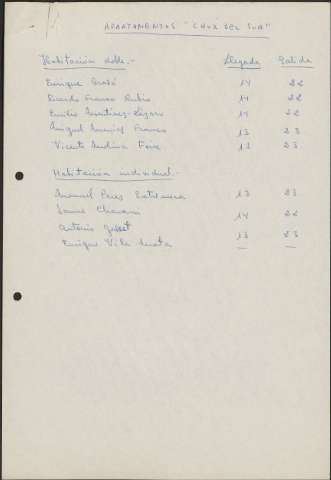 APARTAMENTOS "CRUZ DEL SUR"
Habitación doble.- Llegada Salida
Enrique 14 22
Ricardo Franco Rubio 14 22
Emilio Martínez-Lázaro 14 22
Miguel Franco 13 23
Vicente Molina Foix 13 23
Habitación individual.-
Manuel Pérez Estremera 13 23
Jaume Chavarri 14 22
Antonio 13 23
Enrique Vila Matas — —